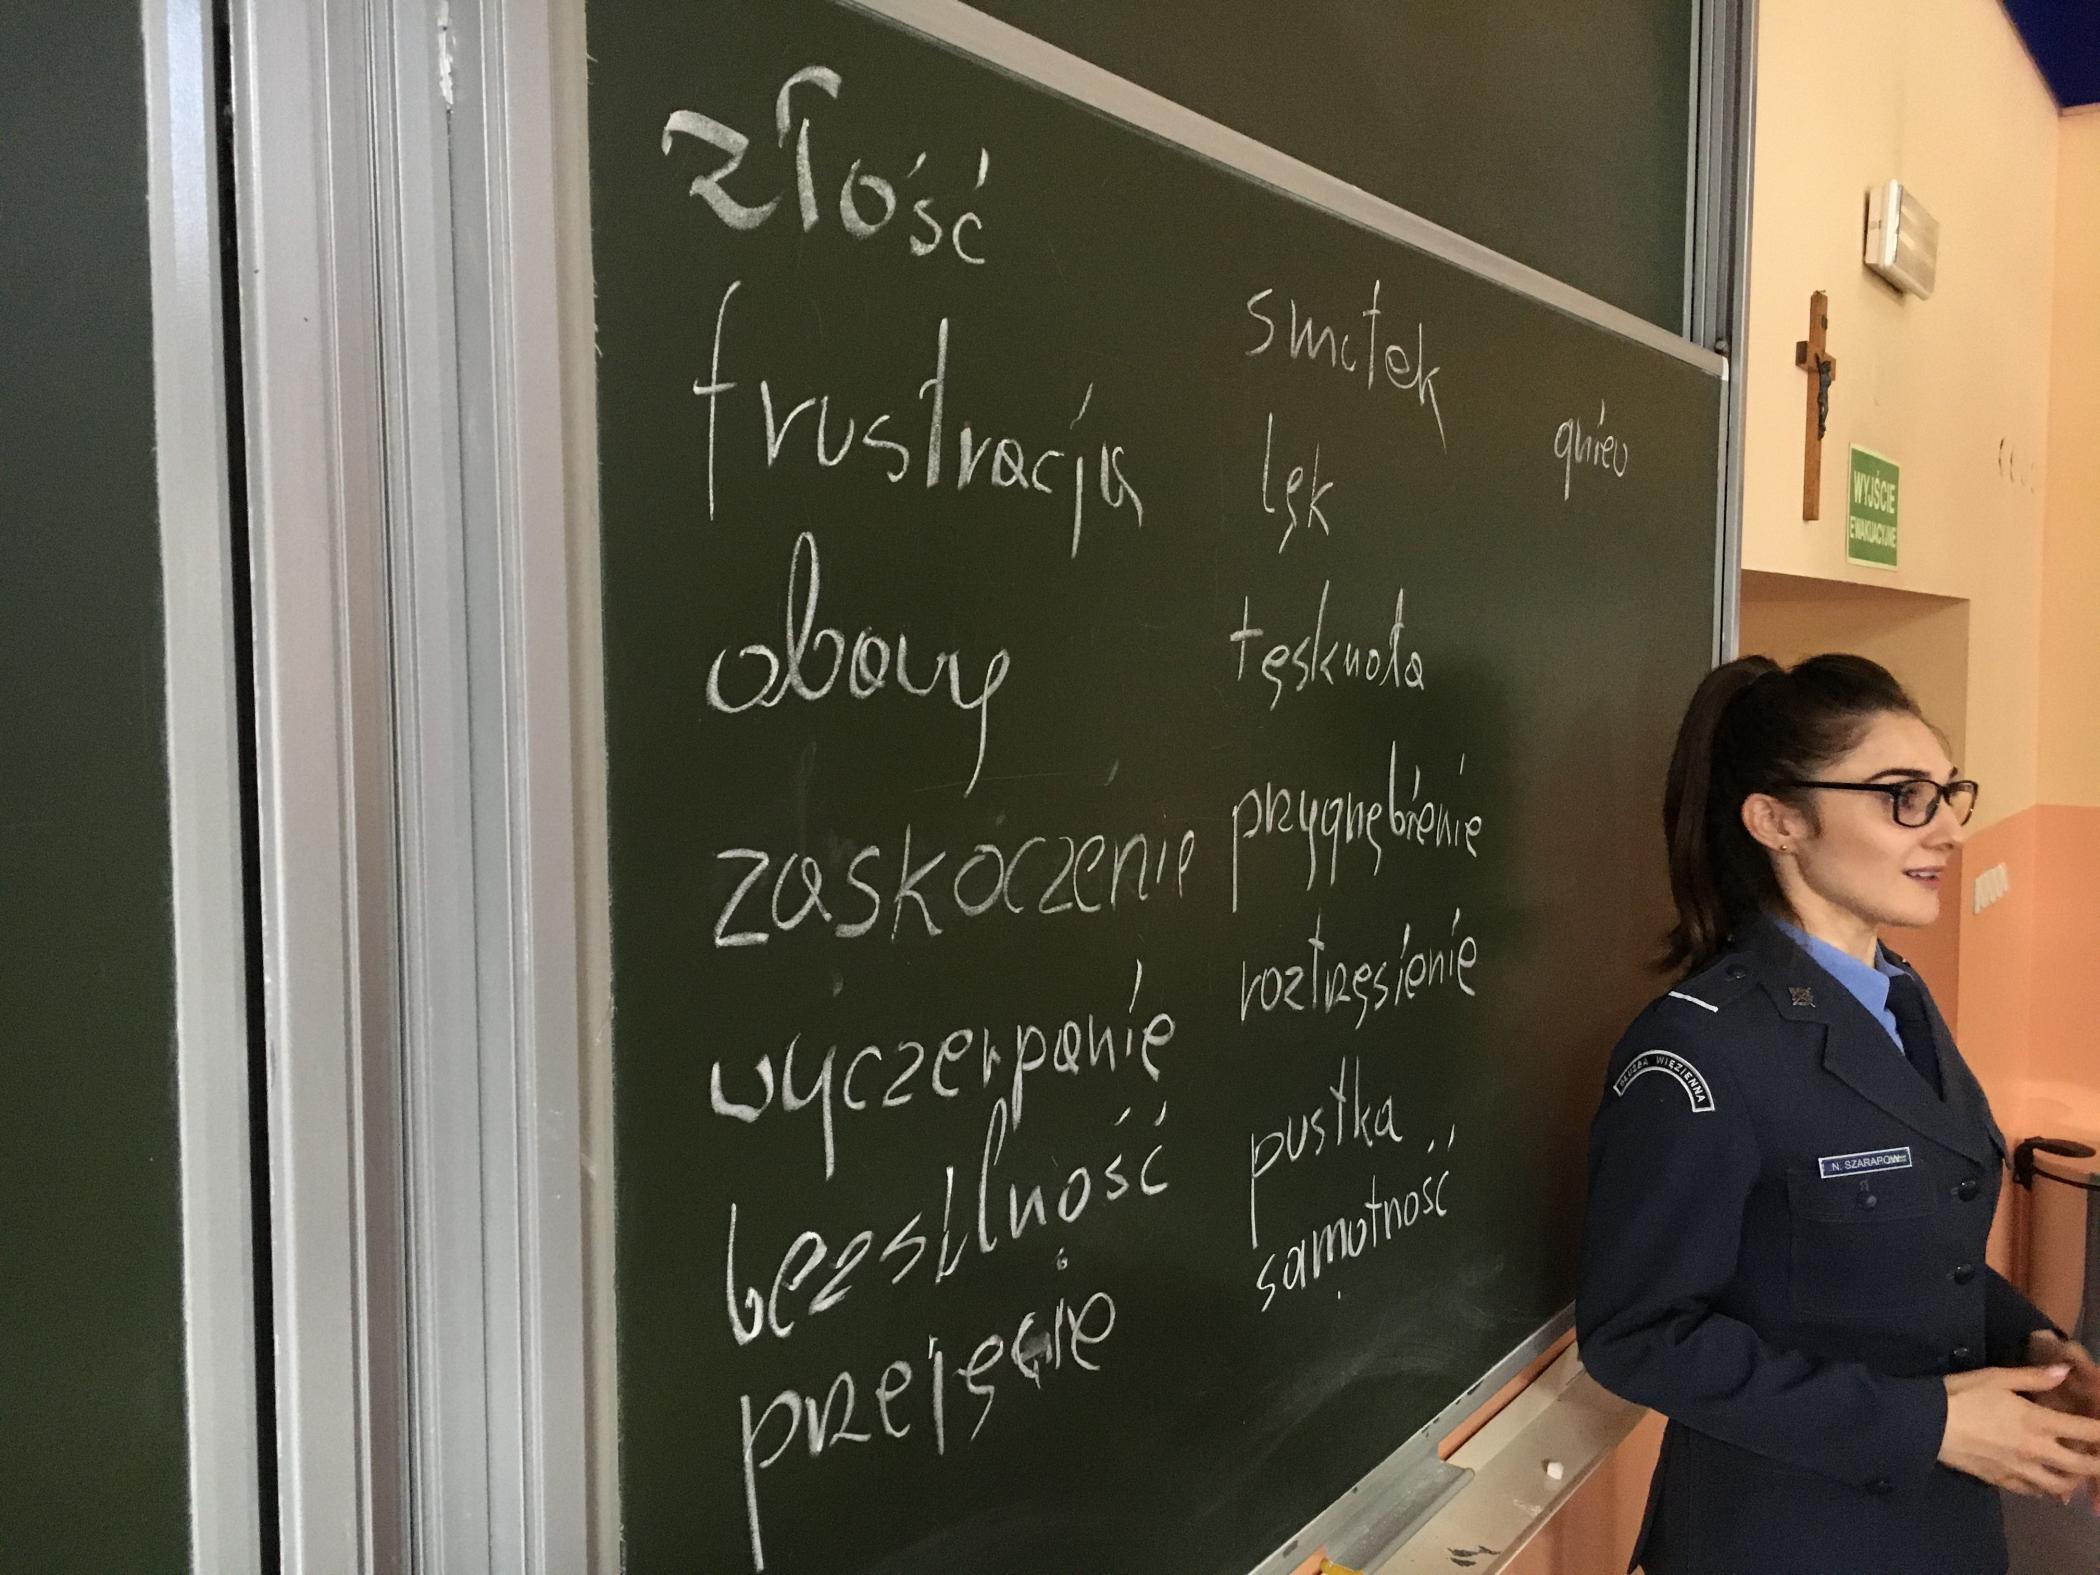 złość
frustracja
obawy
zaskoczenie
wyczerpanie
bezsilność
przejęcie
smutek
lęk
tęsknota
przygnębienie
roztrzęsienie
pustka
samotność
gniew
WYJŚCIE
EWAKUACYJNE
SŁUŻBA WIĘZIENNA
N. SZARAPOW